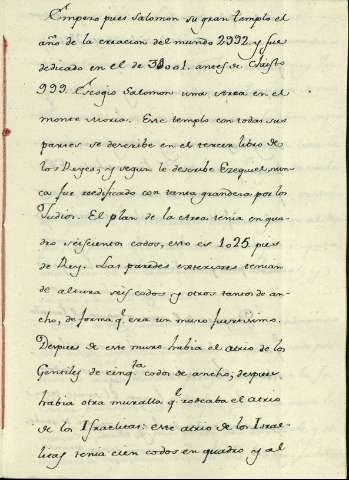 Empero pues Salomon su gran templo el
año de la creacion del mundo 2992 y fue
dedicado en el de 30001. antes de Cristo
999. Escogio Salomon una Area en el
monte Moria. Este templo con todas sus
partes se describe en el tercer libro de
los Reyes; y segun le describe Ezequiel nun-
ca fue reedificado con tanta grandeza por los
Judios. El plan de la Area tenia en qua-
dro seiscientos codos, esto es 1025. pies
de Rey. Las paredes exteriores tenian
de altura seis codos y otros tantos de an-
cho, de forma q.e era un muro fuertisimo.
Despues de este muro habia el atrio de los
Gentiles de cinq.ta codos de ancho; despues
habia otra muralla q.e rodeaba el atrio
de los Israelitas: este atrio de los Israe-
litas tenia cien codos en quadro y al